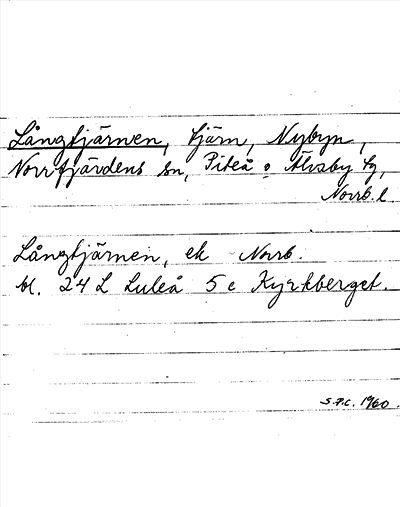 Långtjärnen, tjärn, Nybyn,
Norrfjärdens sn, Piteå o Älvsby tg,
Norrb. l
Långtjärnen, ek Norrb.
bl. 24 L Luleå 5 e Kyrkberget.
S.F.C. 1960.